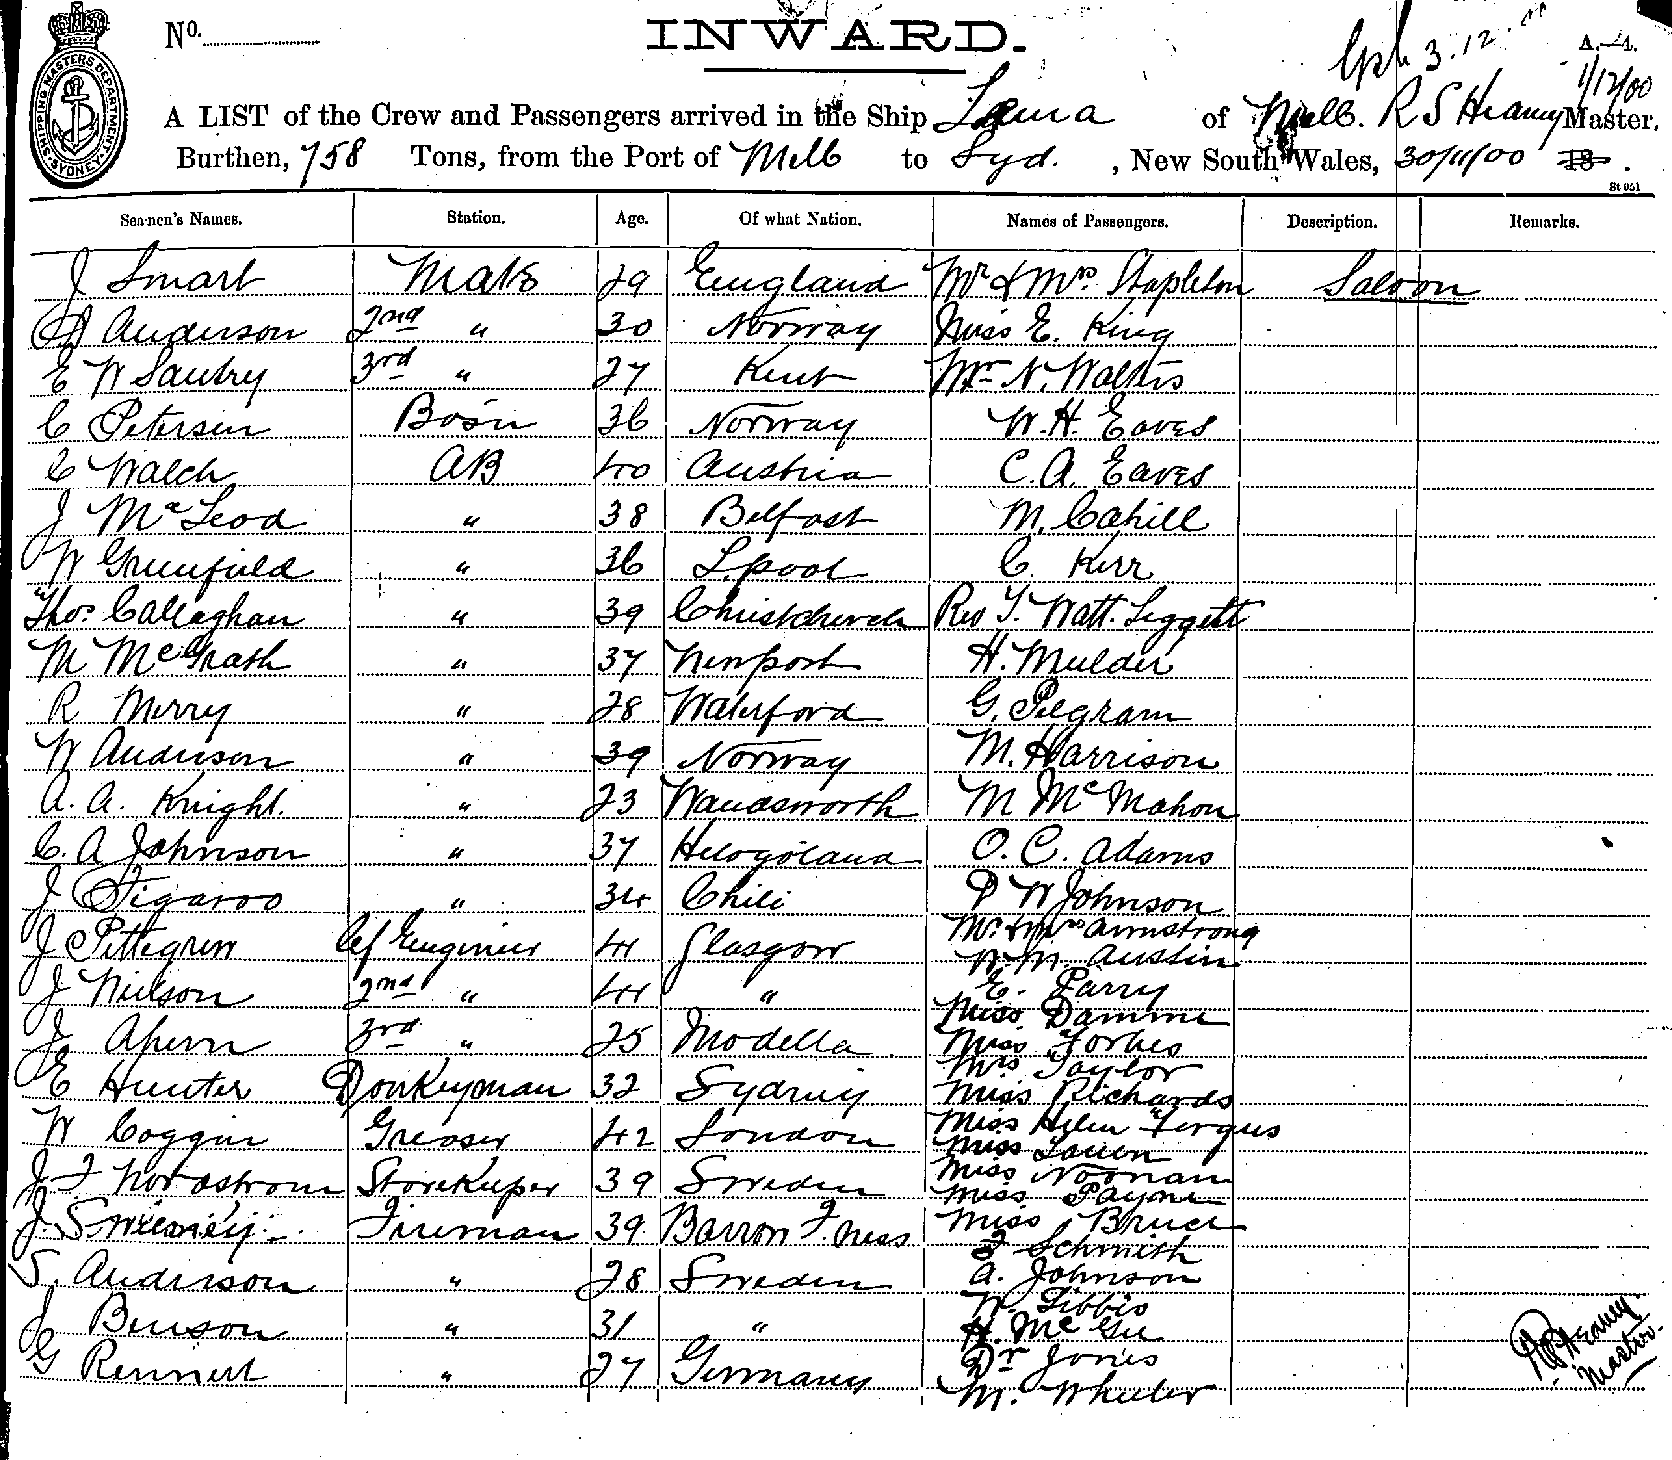 No.
INWARD.
Gph 3.12.00
A.—1.
1/12/00
A LIST of the Crew and Passengers arrived in the Ship Lama of Melb. R S Heaney Master,
Burthen, 758 Tons, from the Port of Melb to Syd. , New South Wales, 30/11/00 18 .
St 051
SHIPPING MASTERS DEPARTMENT SYDNEY
Seamen's Names. Station. Age. Of what Nation. Names of Passengers. Description. Remarks.
J Smart Mate 29 England Mr & Mrs. Stapleton Saloon
Anderson 2nd " 30 Norway Miss E. King
E W Sautry 3rd " 27 Kent Mr N. Walters
C Petersen Bosn 36 Norway W. H. Eaves
C Walch AB 40 Austria C. A. Eaves
J McLeod " 38 Belfast M. Cahill
W Greenfield " 36 L.pool C. Kerr
Thos. Callaghan " 39 Christchurch Rev T. Watt. Leggett
M McGrath " 37 Newport H. Mulder
R Merry " 28 Waterford G. Pilgram
W Anderson " 39 Norway M. Harrison
A. A. Knight. " 23 Wandsworth M McMahon
C. A Johnson " 37 Heligoland O. C. Adams
J Figaroo " 34 Chili D W Johnson
J Pettegrew Cf Engineer 41 Glasgow Mr. & Mrs Armstrong
W. M. Austin
J Neilson 2nd " 44 " E. Parry
Miss Damme
J Ahern 3rd " 25 Modella Miss Forbes
Mrs Taylor
E Hunter Donkeyman 32 Sydney Miss Richards
Miss Helen Fergus
W Coggin Greaser 42 London Miss
J F Nordstrom Storekeeper 39 Sweden Miss Noonan
Miss Payne
J Sweeney Fireman 39 Barrow F. ness Miss Bruce
F Schmith
S. Anderson " 28 Sweden A. Johnson
W. Gibbis
J Benson " 31 " H. McGee
G Rennert " 27 Germany Dr Jones
M. Wheeler
R S Heaney
Master.